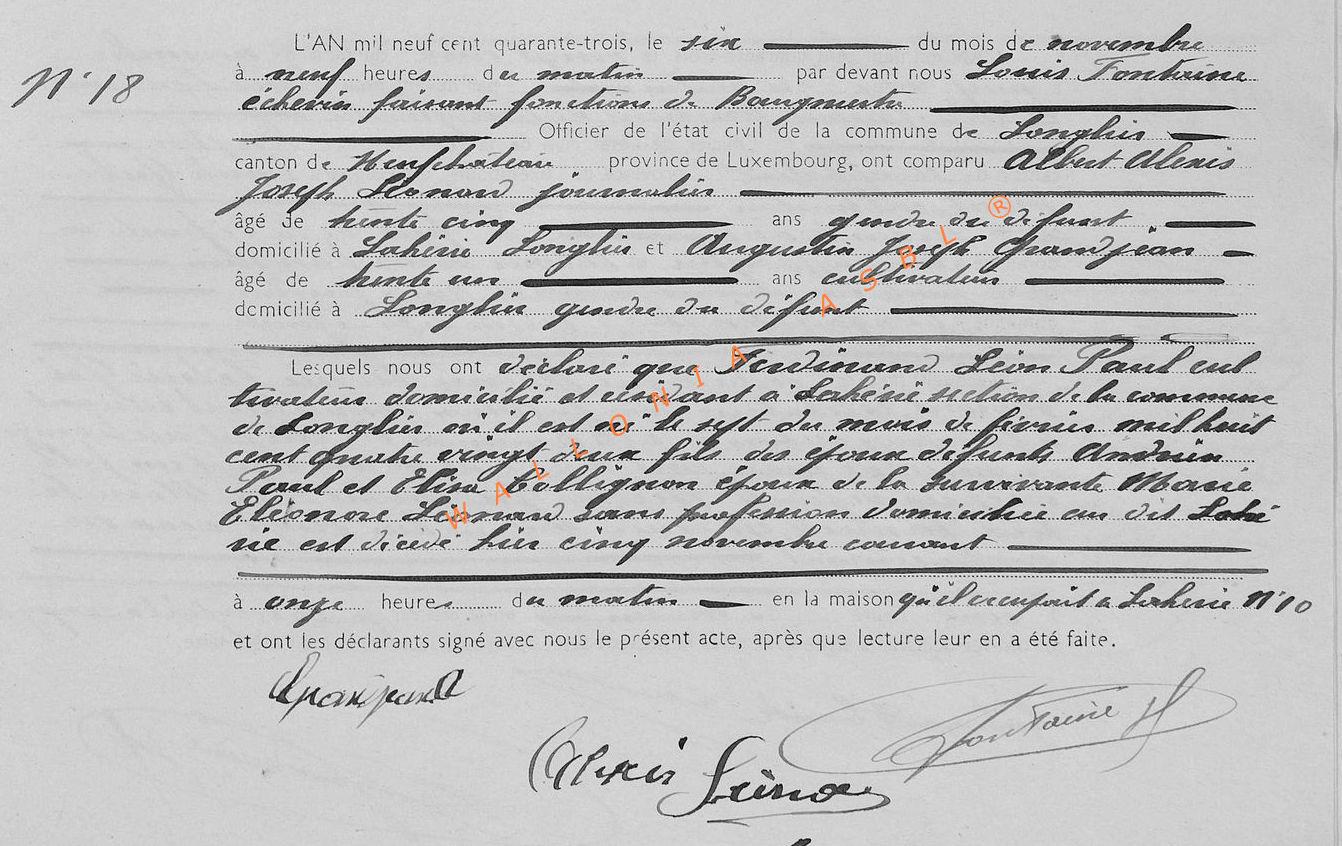 L'AN mil neuf cent quarante-trois, le six du mois de novembre
N° 18
à neuf heures du matin par devant nous Louis Fontaine
échevin faisant fonctions de Bourgmestre
Officier de l'état civil de la commune de Longlier
canton de Neufchâteau province de Luxembourg, ont comparu Albert Alexis
Joseph Léonard journalier
âgé de trente cinq ans gendre du défunt
domicilié à Lahérie Longlier et Augustin Joseph Grandjean
âgé de trente un ans cultivateur
domicilié à Longlier gendre du défunt
Lesquels nous ont déclaré que Ferdinand Léon Paul cul
tivateur domicilié et résidant à Lahérie section de la commune
de Longlier où il est né le sept du mois de février mil huit
cent quatre vingt deux fils des époux défunts
Paul et Elisa Collignon époux de la survivante Marie
Eléonore sans profession domiciliée au dit Lahé
rie est décédé hier cinq novembre courant
à onze heures du matin en la maison qu'il occupait à Lahérie N° 10
et ont les déclarants signé avec nous le présent acte, après que lecture leur en a été faite.
Fontaine
Alexis
WALLONIA ASBL ®